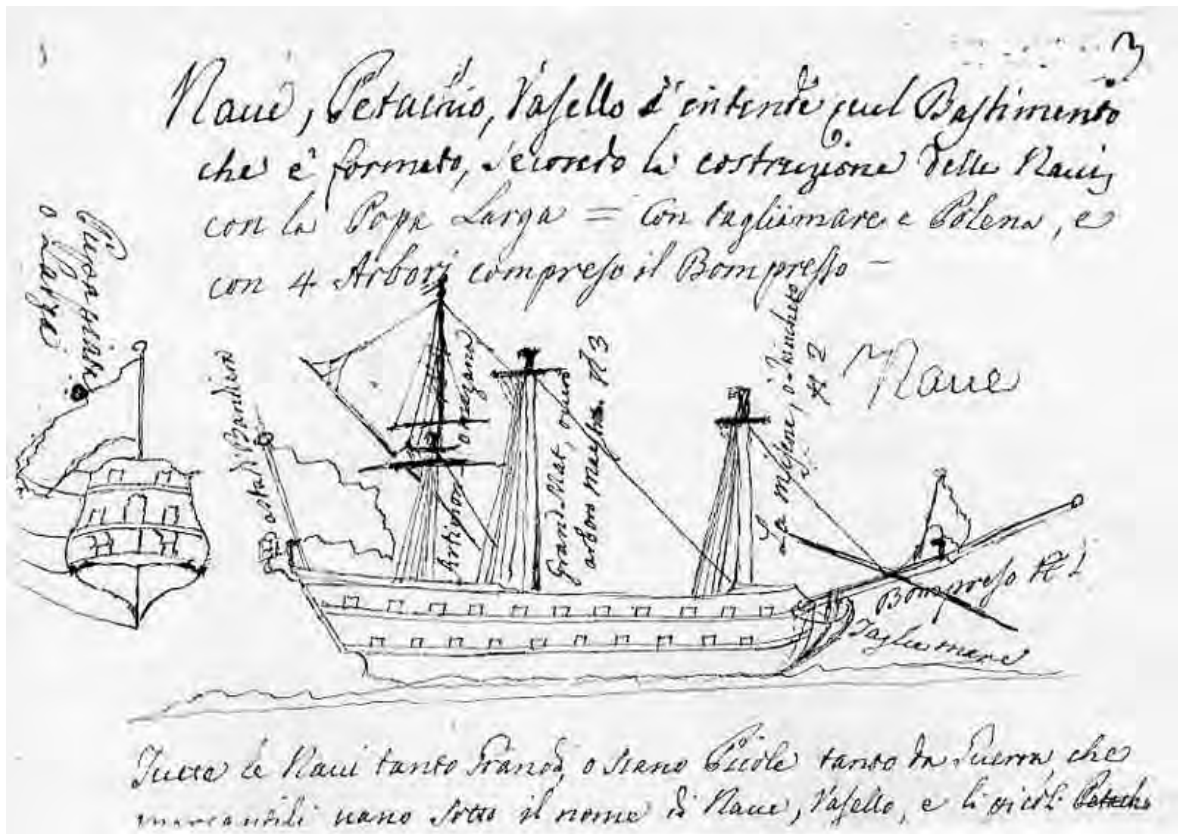 3
Nave, Petachio, Vasello s'intende quel Bastimento
che è formato, secondo la costruzione delle Navi,
con la Popa Larga = Con tagliamare e Polena, e
con 4 Arbori compreso il Bompresso –
o Larga
asta di Bandiera
Artimon o mezana
Grand Mat, o
arbore maestra. N 3
La Misene, o trincheto
N 2
Nave
Bompreso N 1
Tagliamare
Tutte le Navi tanto Grandi, o siano Picole tanto da Guerra, che
mercantili vano sotto il nome di Nave, Vasello, e li picoli Petachi